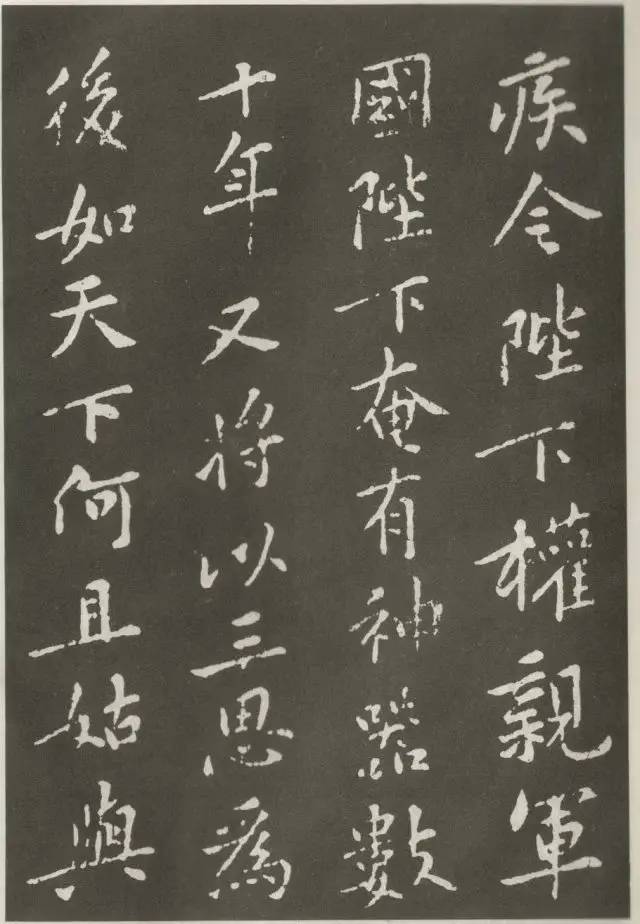 疾今陛下權親軍
國陛下奄有神器數
十年又將以三思為
後如天下何且姑與